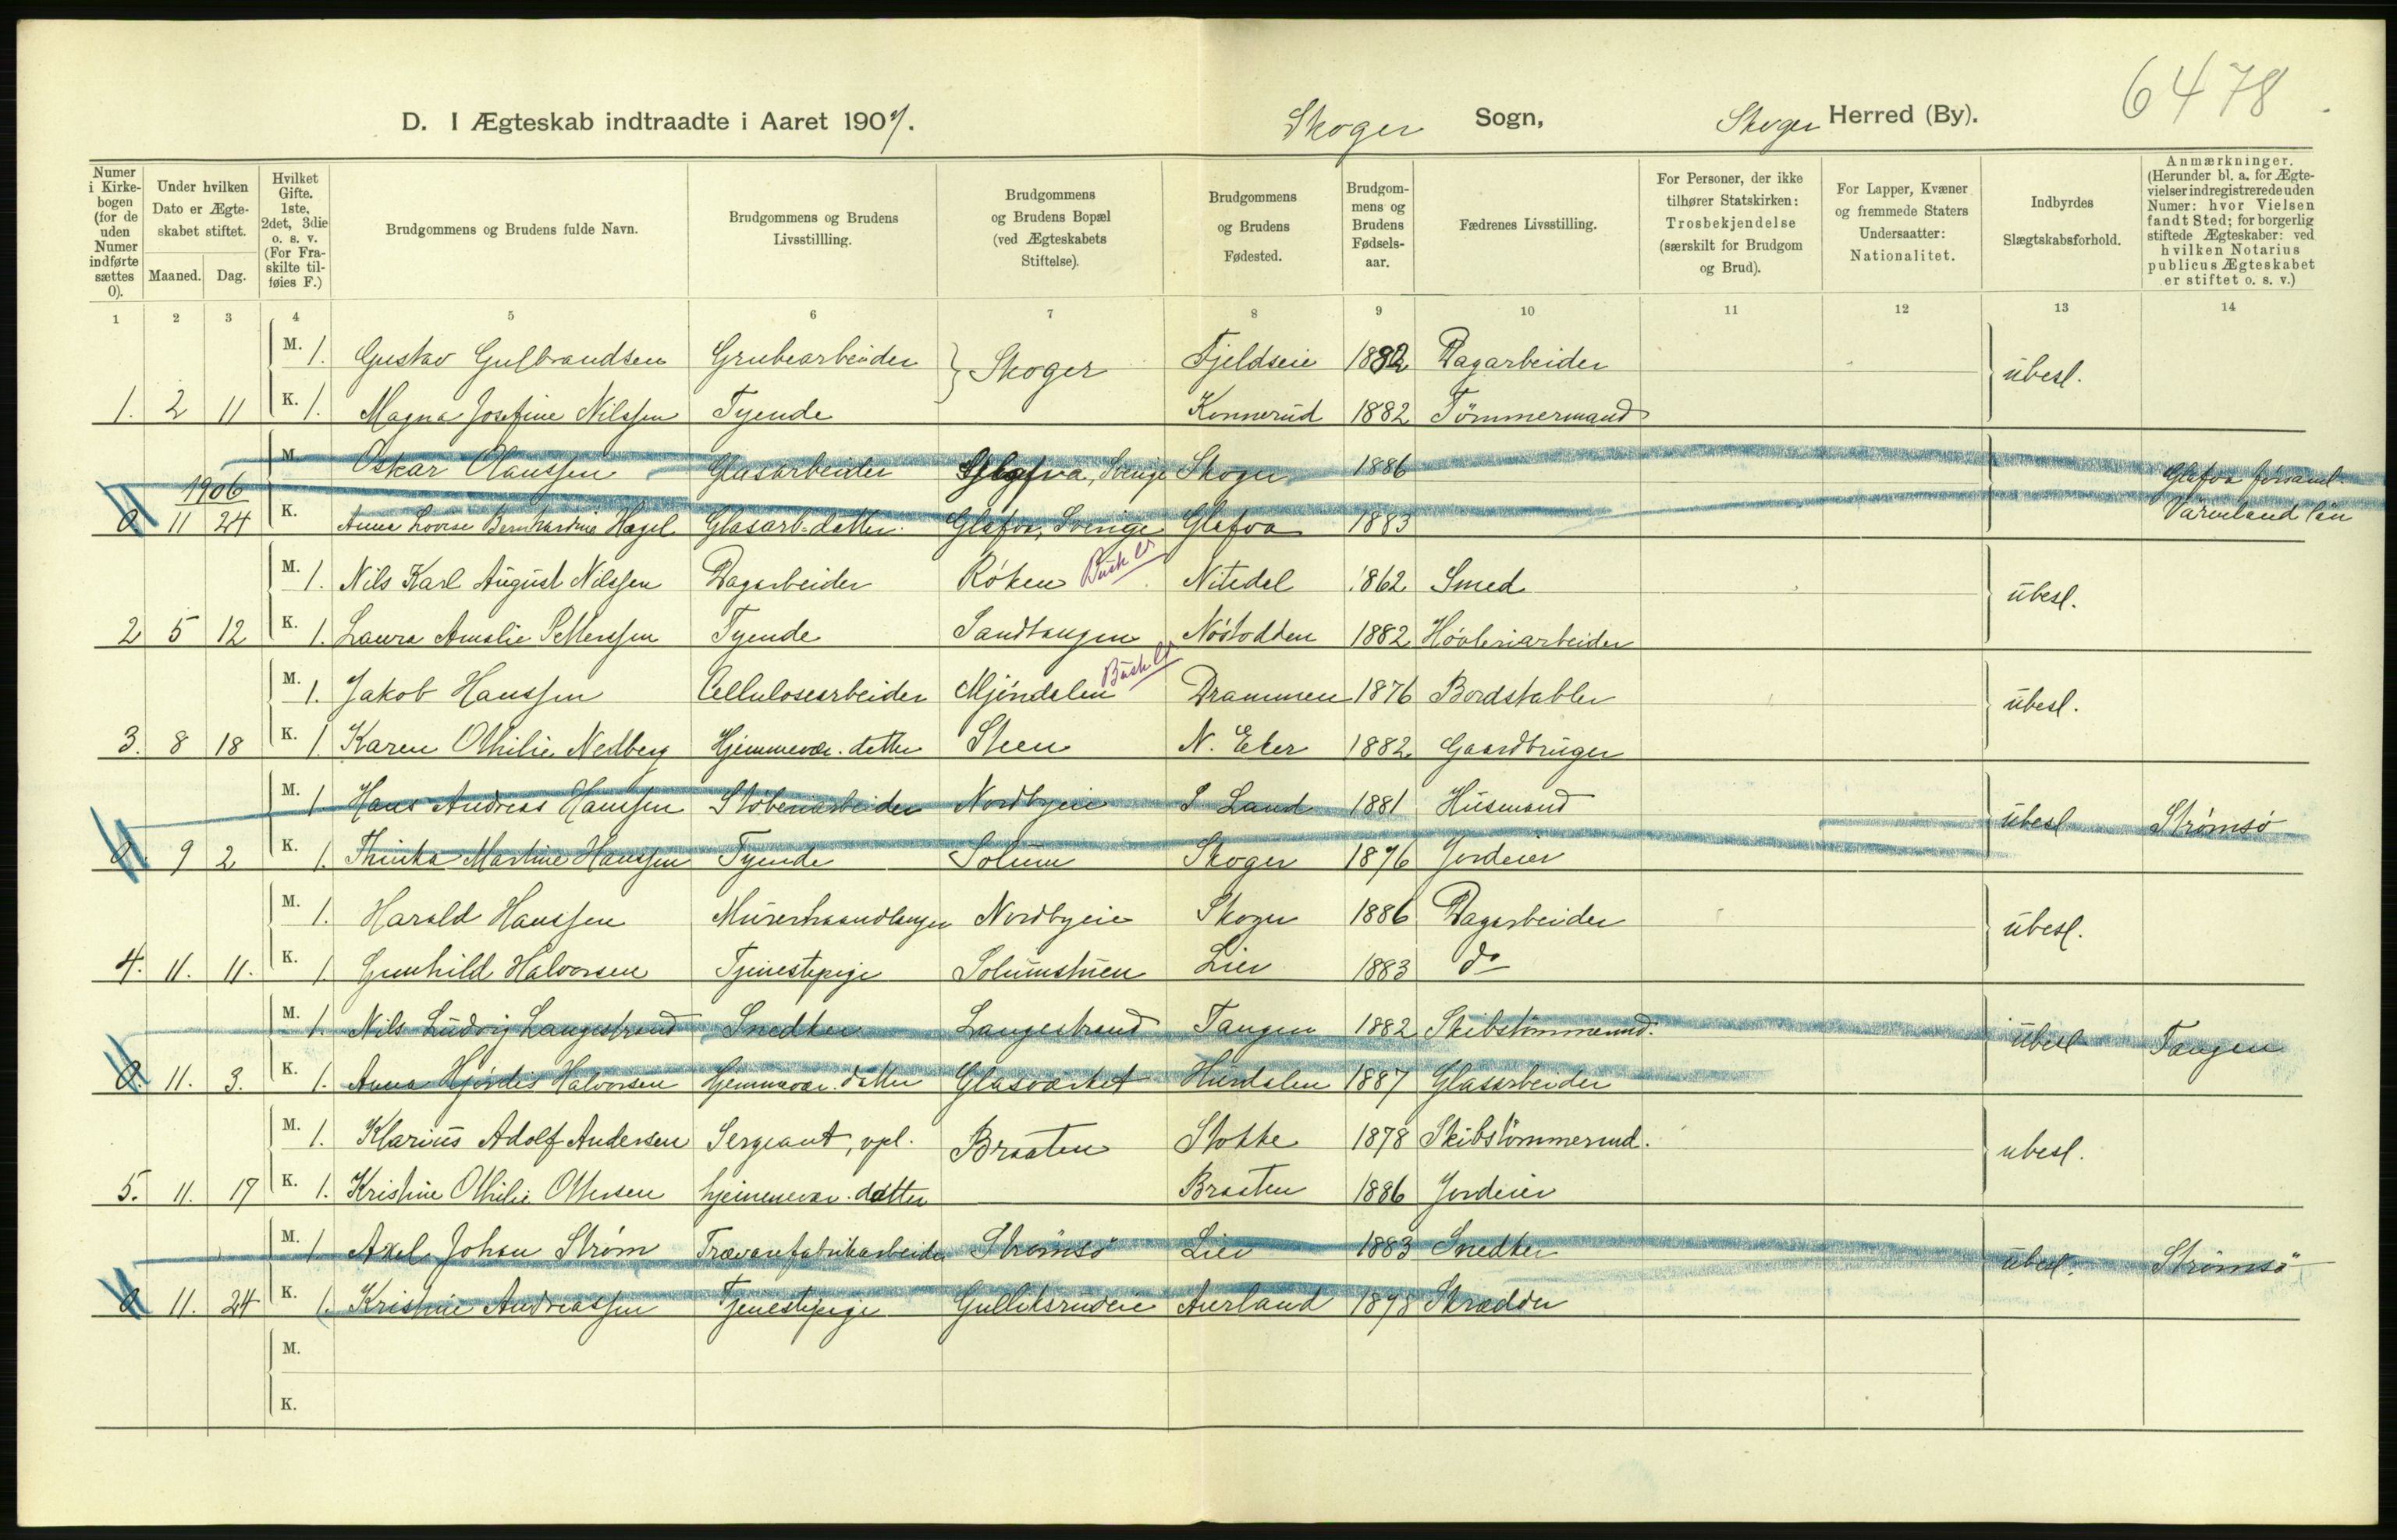 6478
D. I Ægteskab indtraadte i Aaret 1907. Skoger Sogn, Skoger Herred (By).
Numer i Kirkebogen (for de uden Numer indførte sættes 0).
Under hvilken Dato er Ægteskabet stiftet.
Maaned. Dag.
Hvilket Gifte. 1ste, 2det, 3die o. s. v. (For Fraskilte tilføies F.)
Brudgommens og Brudens fulde Navn.
Brudgommens og Brudens Livsstillling.
Brudgommens og Brudens Bopæl (ved Ægteskabets Stiftelse).
Brudgommens og Brudens Fødested.
Brudgommens og Brudens Fødselsaar.
Fædrenes Livsstilling.
For Personer, der ikke tilhører Statskirken: Trosbekjendelse (særskilt for Brudgom og Brud).
For Lapper, Kvæner og fremmede Staters Undersaatter: Nationalitet.
Indbyrdes Slægtskabsforhold.
Anmærkninger. (Herunder bl. a. for Ægtevielser indregistrerede uden Numer: hvor Vielsen fandt Sted; for borgerlig stiftede Ægteskaber: ved hvilken Notarius publicus Ægteskabet er stiftet o. s. v.)
1 2 3 4 5 6 7 8 9 10 11 12 13 14
M. 1. Gustav Gulbrandsen Grubearbeider } Skoger Fjeldseie 1882 Dagarbeider ubesl.
1. 2 11 K. 1. Magna Josefine Nilssen Tyende Konnerud 1882 Tömmermand
M. Oskar Olaussen Glasarbeider Glafva, Sverige Skoger 1886 Glafva församl.
1906
0 11 24 K. Anna Lovise Bernhardina Hagel Glasarb. datter. Glafva, Sverige Glafva 1883 Värmland län
M. 1. Nils Karl August Nilssen Dagarbeider Röken Busk Nitedal 1862 Smed ubesl.
2 5 12 K. 1. Laura Amalie Petterssen Tyende Sandtangen Nöstodden 1882 Hövleriarbeider
M. 1. Jakob Hanssen Cellulosearbeider Mjöndalen Busk Drammen 1876 Bordstabler ubesl.
3. 8 18 K. 1. Karen Othilie Nedberg Hjemmevær. datter Steen N. Eker 1882 Gaardbruger
M. 1 Hans Andreas Hanssen Stöberiarbeider Nordbyeie S. Land 1881 Husmand ubesl. Strömsö
0. 9 2 K. 1. Thinka Martine Hanssen Tyende Solum Skoger 1876 Jordeier
M. 1. Harald Hanssen Murerhaandlanger Nordbyeie Skoger 1886 Dagarbeider ubesl.
4. 11. 11. K. 1. Gunhild Halvorsen Tjenestepige Solumstuen Lier 1883 do
M. 1. Nils Ludvig Langestrand Snedker Langestrand Tangen 1882 Skibstömmermd. ubesl Tangen
0. 11. 3. K. 1. Anna Hjördis Halvorsen Hjemmevær. datter Glasværket Hurdalen 1887 Glasarbeider
M. 1. Klarius Adolf Andersen Sergeant, vpl. Braaten Stokke 1878 Skibstömmermd. ubesl.
5. 11. 17 K. 1. Kristine Othilie Ottersen hjemmevær. datter Braaten 1886 Jordeier
M. 1 Axel Johan Ström Trævarefabrikarbeider Strömsö Lier 1883 Snedker ubesl. Strömsö
0 11. 24 K. 1. Kristine Andreassen Tjenestepige Gulliksrudeie Aurland 1878 Skrædder
M.
K.